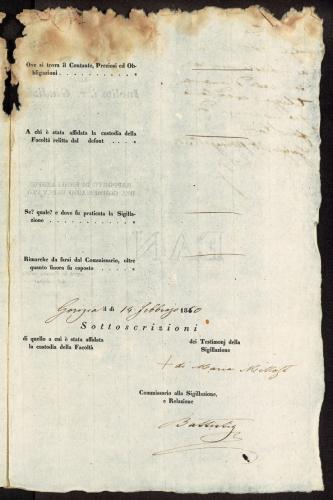 Ove si trova il Contante, Preziosi ed Ob-
bligazioni
A chi è stata affidata la custodia della
Facoltà relitta dal defont
Se? quale? e dove fu praticata la Sigilla-
zione
Rimarche da farsi dal Commissario, oltre
quanto finora fu esposto
Gorizia li di 19 Febbrajo 1860
Sottoscrizioni
di quello a cui è stata affidata
la custodia della Facoltà
dei Testimonj della
Sigillazione
+ di Maria
Commissario alla Sigillazione,
e Relazione